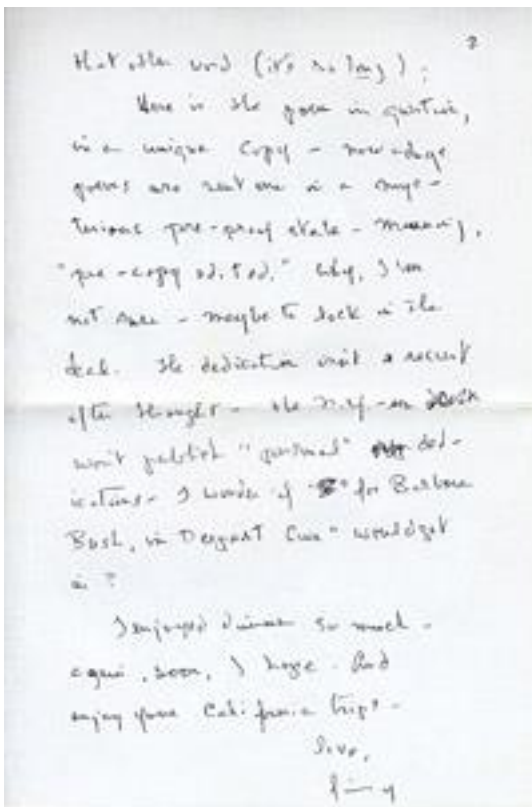 2
that other word (it's so long).
Here is the poem in question,
in a unique copy – nowadays
poems are sent me in a mys-
terious pre-proof state – meaning,
"pre-copy edited." Why, I'm
not sure – maybe to lock in the
deal. The dedication isn't a recent
after thought – the
won't publish "personal" ded-
ications. I wonder if " for Barbara
Bush, in Desert " would get
in?
I enjoyed dinner so much –
again, soon, I hope. And
enjoy your California trip –
love,